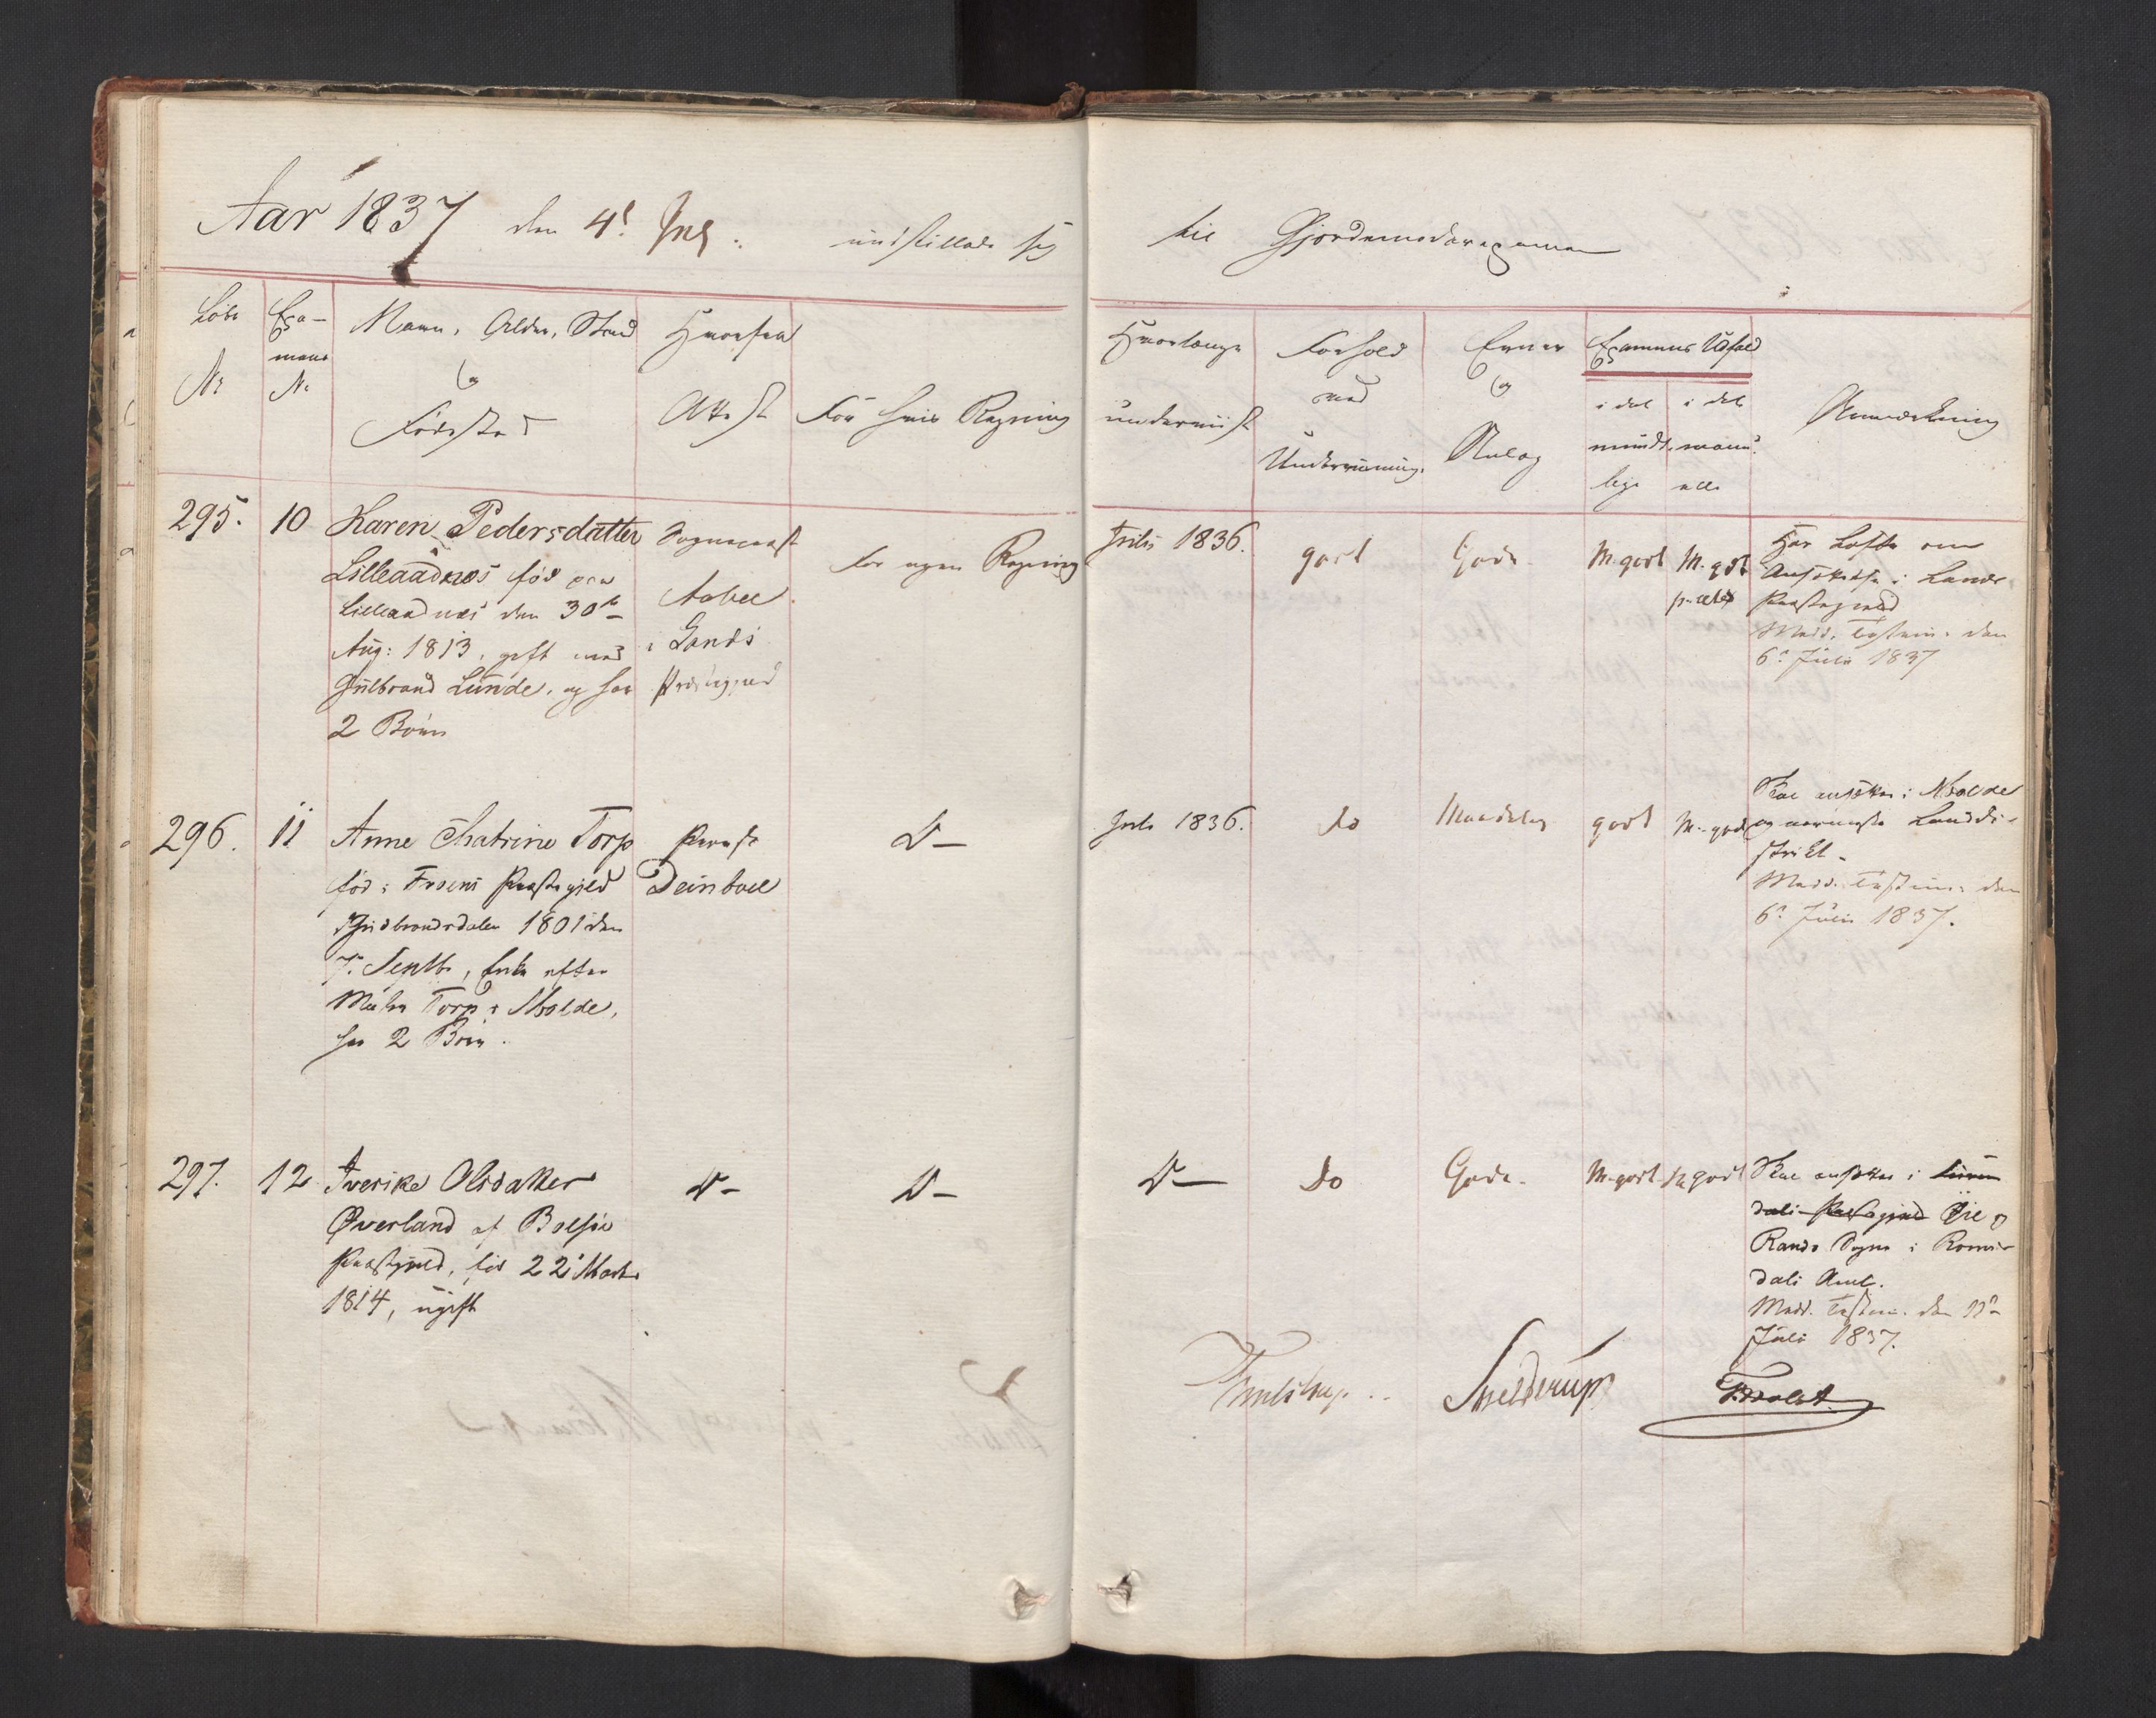 Aar 1837 den 4de Juli indstillede sig til Gjordemoderexamen
Løbe No
Exa-
mens
No
Navn, Alder, Stand
og
Fødested
Hvorfra
Attest
For hvis Regning
Hvorlænge
underviist
Forhold
med
Underviisning.
Evner
og
Anlæg
Examens Udfald
i det
mundt-
lige
i det
manu-
elle
Anmærkning
295. 10
Karen Pedersdatter
Lilleaadnæs fød paa
Lilleaadnæs den 30te
Aug: 1813, gift med
Gulbrand Lunde, og har
2 Børn
Sognepræst
Aabel
i Lands
Præstegjeld
For egen Regning
Julii 1836.
godt
Gode
M. godt
M. godt
Har Løfte om
Ansættelse i Lands
Præstegjeld
Medd. Testim. den
6te Julii 1837
296. 11
Anne Chatrine Torp
fød i Froens Præstegjeld
Gudbrandsdalen 1801 den
7. Septb, Enke efter
Torp i Molde,
har 2 Børn.
Provst
Deinboll
Do
Juli 1836.
do
Maadelig
godt
M. godt
Skal ansættes i Molde
og nærmeste Landdi-
strikt.
Medd. Testim. den
6te Julii 1837.
297. 12
Iverike Olsdatter
Øverland af Bolsøe
Præstgjeld, fød 22 Marts
1814, ugift
Do
Do
Do
do
Gode.
M. godt
M. godt
Skal ansættes i
dals Præstegjeld og
Sogne i Roms-
dals Amt.
Medd. Testim. den 11te
Julii 1837.
Thulstrup.
Skjelderup
F. Holst